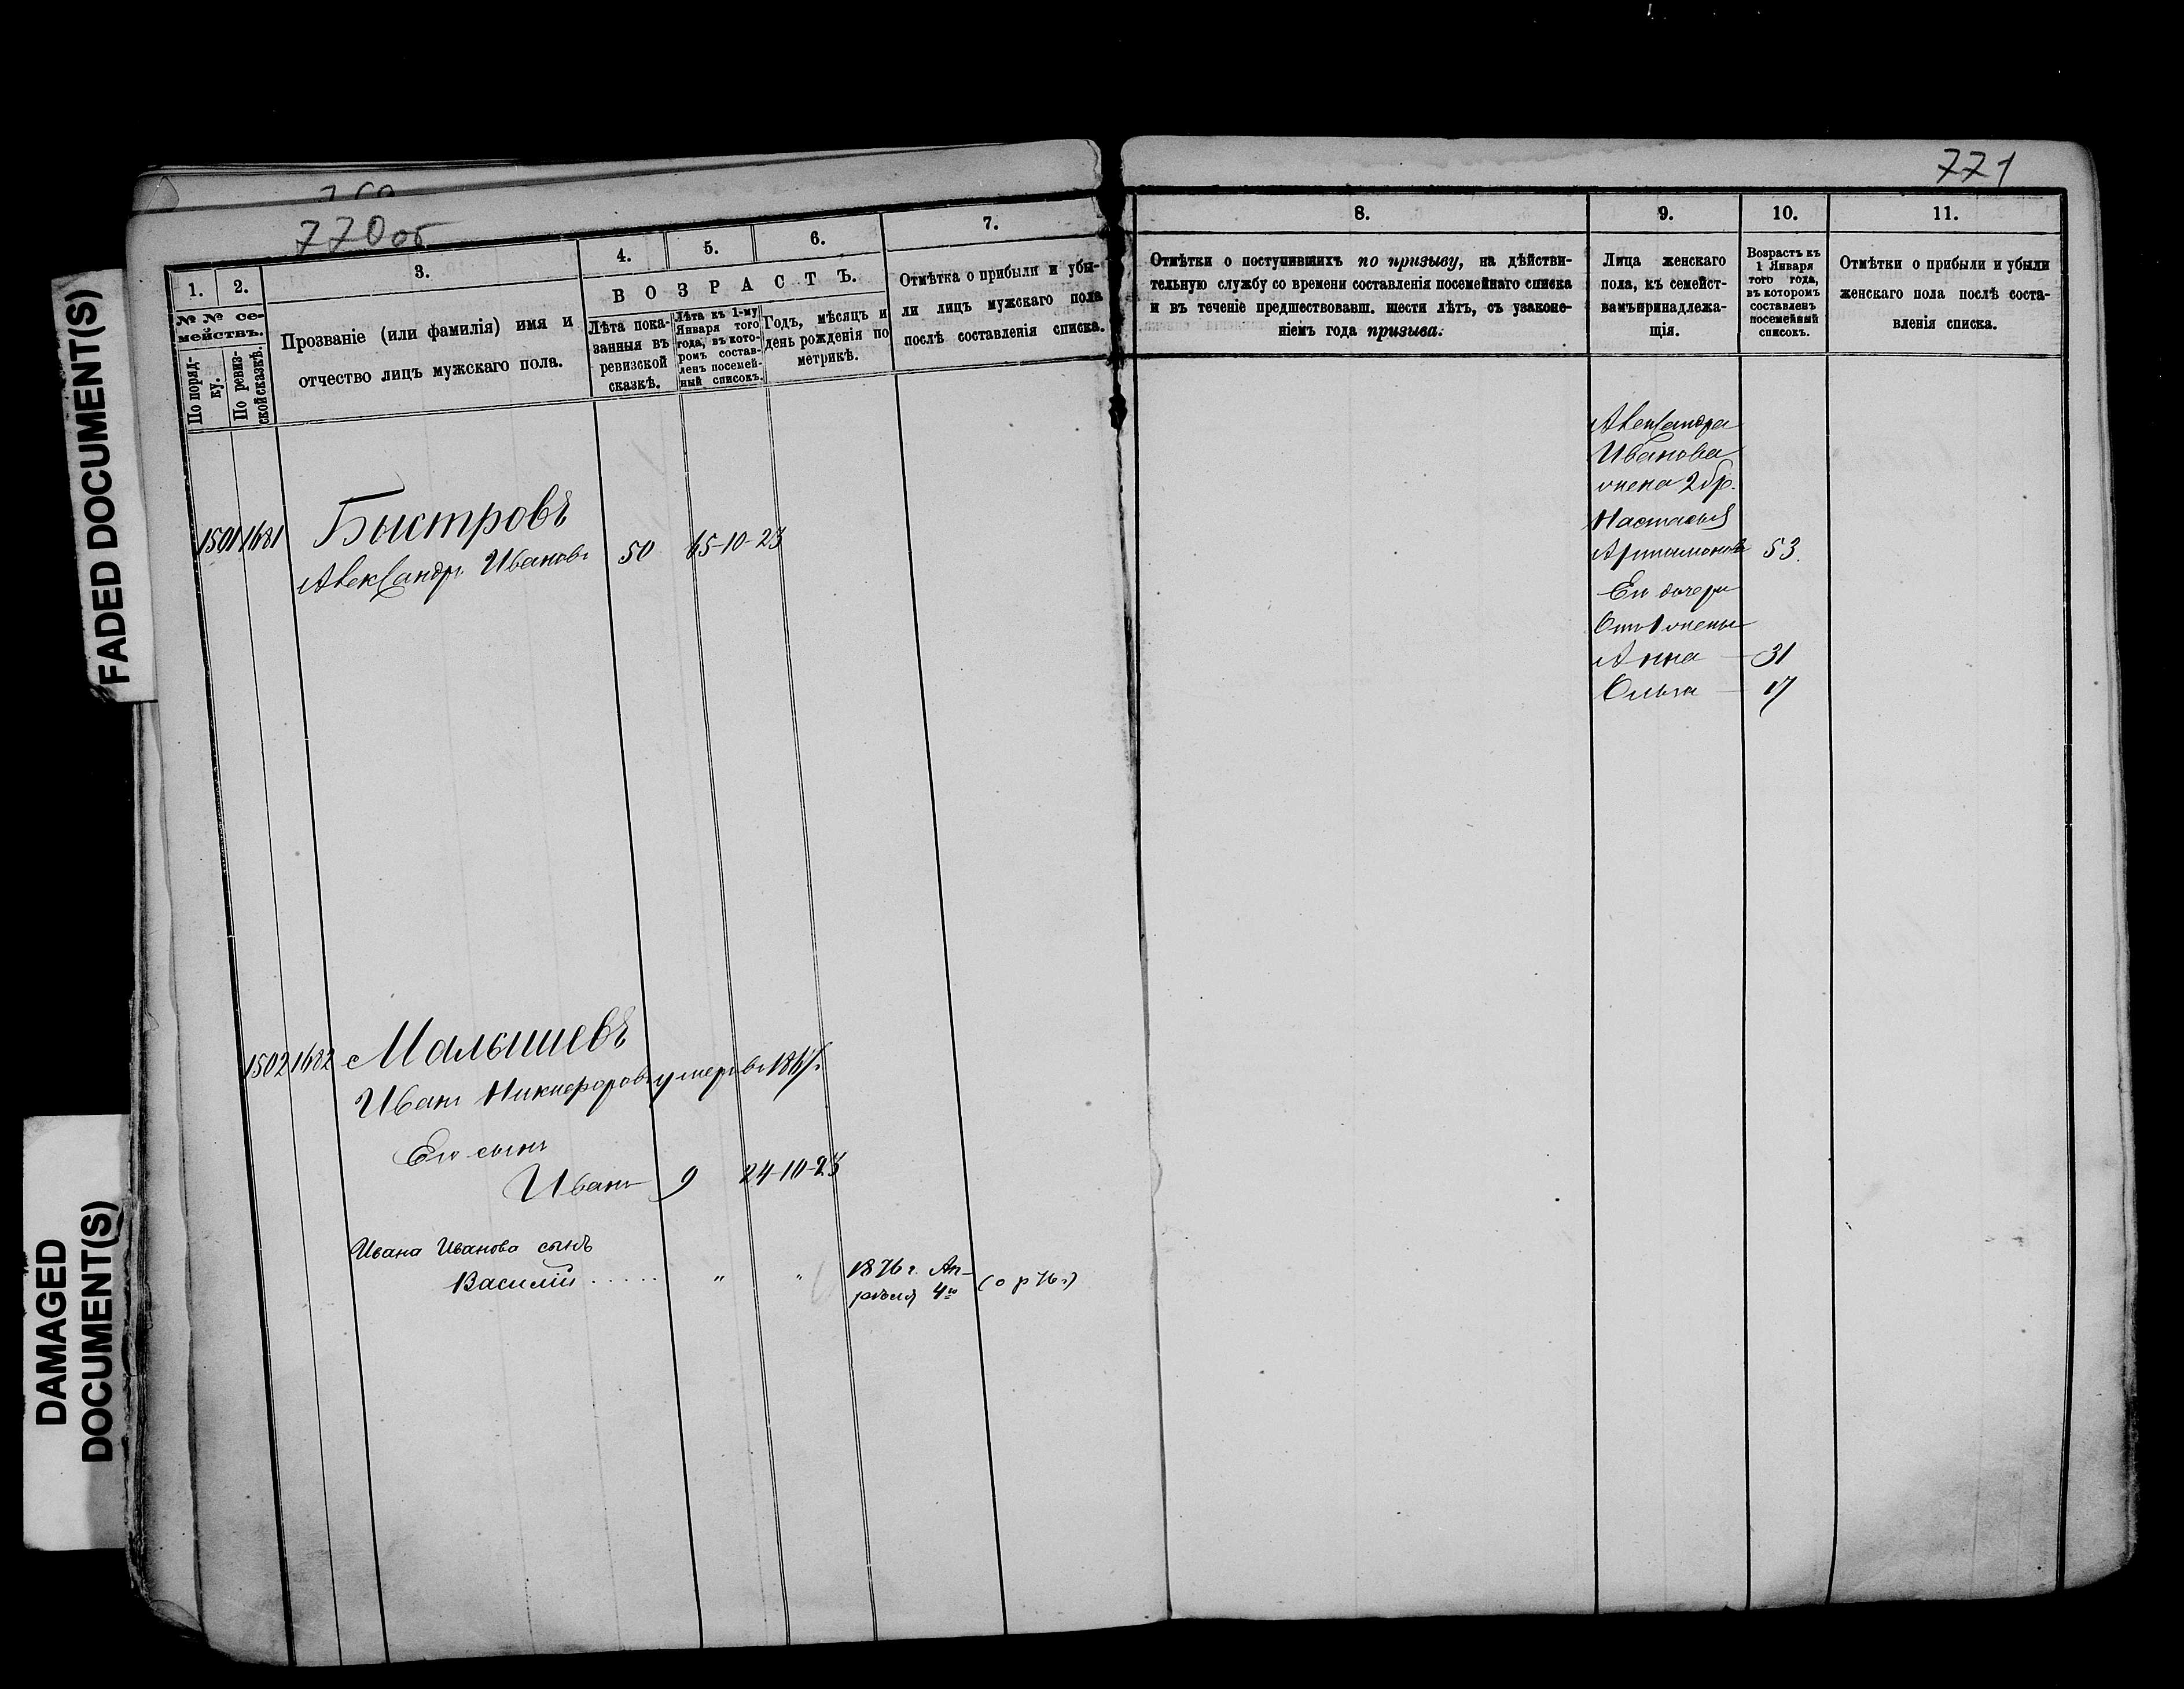 FADED DOCUMENT(S)
DAMAGED
DOCUMENT(S)
770 об
1.
2.
3.
4.
5.
6.
7.
№№ се-
мействъ.
По поряд-
ку.
По ревиз-
ской сказкѣ.
Прозваніе (или фамилія) имя и
отчество лицъ мужскаго пола.
ВОЗРАСТЪ.
Лѣта пока-
занныя въ
ревизской
сказкѣ.
Лѣта къ 1-му
Января того
года, въ кото-
ромъ состав-
ленъ посемей-
ный списокъ.
Годъ, мѣсяцъ и
день рожденія по
метрикѣ.
Отмѣтка о прибыли и убы-
ли лицъ мужскаго пола
послѣ составленія списка.
1501 1681 Быстровъ
Александръ Ивановъ 50 65-10-23
1502 1682 Малышевъ
Иванъ Никифоровъ умеръ въ 1867г.
Его сынъ
Иванъ 9 24-10-23
Ивана Иванова сынъ
Василій . . . . . " " 1876 г. Ап-
рѣля 4го (о р 76 г)
771
8.
9.
10.
11.
Отмѣтки о поступившихъ по призыву, на дѣйстви-
тельную службу со времени составленія посемейнаго списка
и въ теченіе предшествовавш. шести лѣтъ, съ узаконе-
ніемъ года призыва.
Лица женскаго
пола, къ семейст-
вамъ принадлежа-
щія.
Возрастъ къ
1 Января
того года,
въ которомъ
составленъ
посемейный
списокъ.
Отмѣтки о прибыли и убыли
женскаго пола послѣ соста-
вленія списка.
Александра
Иванова
жена 2 бр.
Настасья
Артамонова 53.
Его дочери
Отъ 1 жены
Анна — 31
Ольга — 17